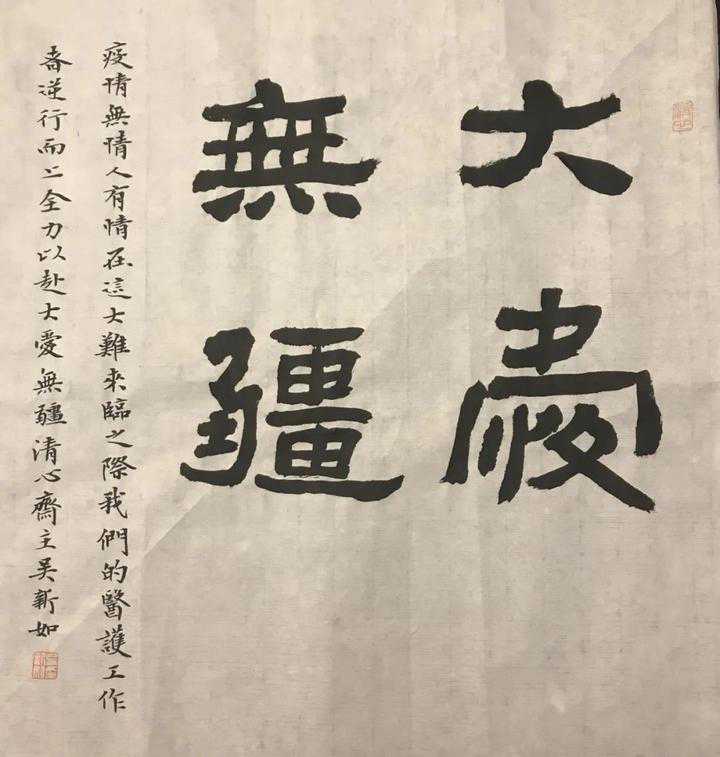 大愛
無疆
疫情無情人有情在這大難來臨之際我們的醫護工作
者逆行而上全力以赴大愛無疆清心齋主吴新如